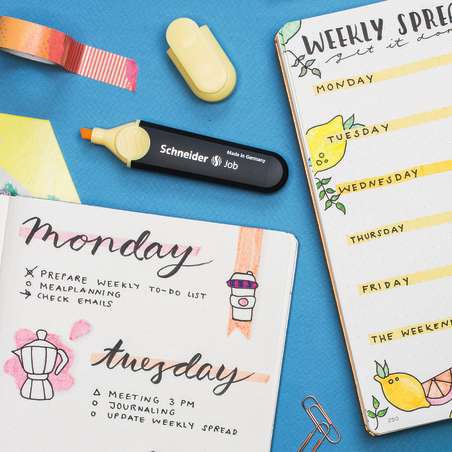 WEEKLY SPREA
get it don
MONDAY
TUESDAY
WEDNESDAY
THURSDAY
FRIDAY
THE WEEKEN
250
Schneider Job
Made in Germany
monday
x PREPARE WEEKLY TO-DO LIST
o MEALPLANNING
→ CHECK EMAILS
tuesday
△ MEETING 3 PM
o JOURNALING
o UPDATE WEEKLY SPREAD